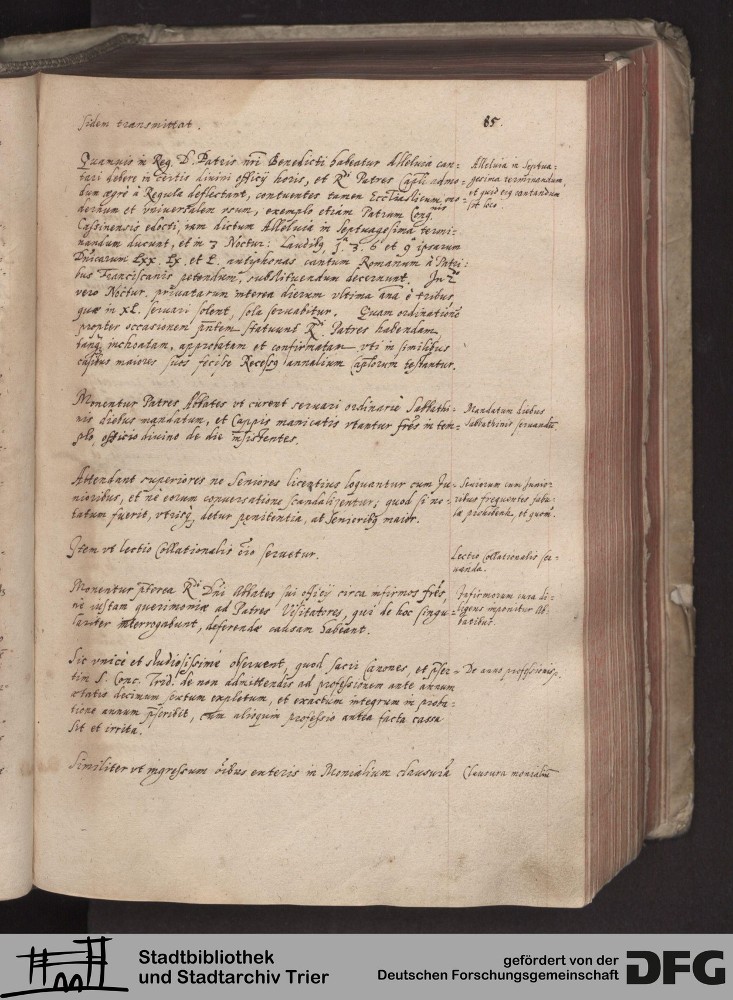 fidem transmittat.
85.
Quamuis in Reg. D. Patris nri Benedicti habeatur Alleluia can=
tari debere in certis diuini officij horis, et Rdi Patres Capli admo=
dum aegrè à Regula deflectant, contuentes tamen Ecclesiasticum mo=
dernum et vniuersalem vsum, exemplo etiam Patrum Cong.nis
Cassinensis edocti, iam dictum Alleluia in Septuagesima termi=
nandum ducunt, et in 3 Noctur: Laudibq 1a 3. 6 et 9a ipsarum
Dnicarum Lxx. Lx. et L. antyphonas cantum Romanum à Patri=
bus Franciscanis petendum, substituendum decernunt. In 2
vero Noctur. priuatarum interea dierum vltima ana è tribus
quae in XL. seruari solent, sola seruabitur. Quam ordinatione
propter occasionem pntem statuunt Rdi Patres habendam
tanq inchoatam, approbatam et confirmatam vti in similibus
casibus maiores suos fecisse Recessq annalium Caplorum testantur.
Alleluia in Septua=
gesima terminandum,
et quid eiq cantandum
sit loco.
Monentur Patres Abbates vt curent seruari ordinariè Sabbathi=
nis diebus mandatum, et Cappis manicatis vtantur fres in tem=
plo officio diuino de die insistentes.
Mandatum diebus
Sabbathinis seruandu
Attendant superiores ne Seniores licentius loquantur cum Ju=
nioribus, et nè eorum conuersatione scandalizentur; quod si no=
tatum fuerit, vtrisq detur penitentia, at Senioribq maior.
Seniorum cum junio=
ribus frequentes fabu=
lae prohibentr, et quom.
Item vt lectio Collationalis oio seruetur.
Lectio collationalis ser=
uanda.
Monentur pterea Rdi Dni Abbates sui officij circa infirmos fres,
ne iustam querimoniae ad Patres Visitatores, qui de hoc singu=
lariter interrogabunt, deferendae causam habeant.
Infirmorum cura di=
ligens imponitur Ab=
batibus.
Sic vnicè et studiosissimè obseruent, quod sacri Canones, et pser=
tim S. Conc. Trid. de non admittendis ad professionem ante annum
aetatis decimum sextum expletum, et exactum integrum in proba=
tione annum pscribit, cum alioquin professio antea facta cassa
sit et irrita.
De anno professionis.
Similiter vt ingressum oibus exteris in Monialium clausura
Clausura monialiu
Stadtbibliothek
und Stadtarchiv Trier
gefördert von der
Deutschen Forschungsgemeinschaft
DFG